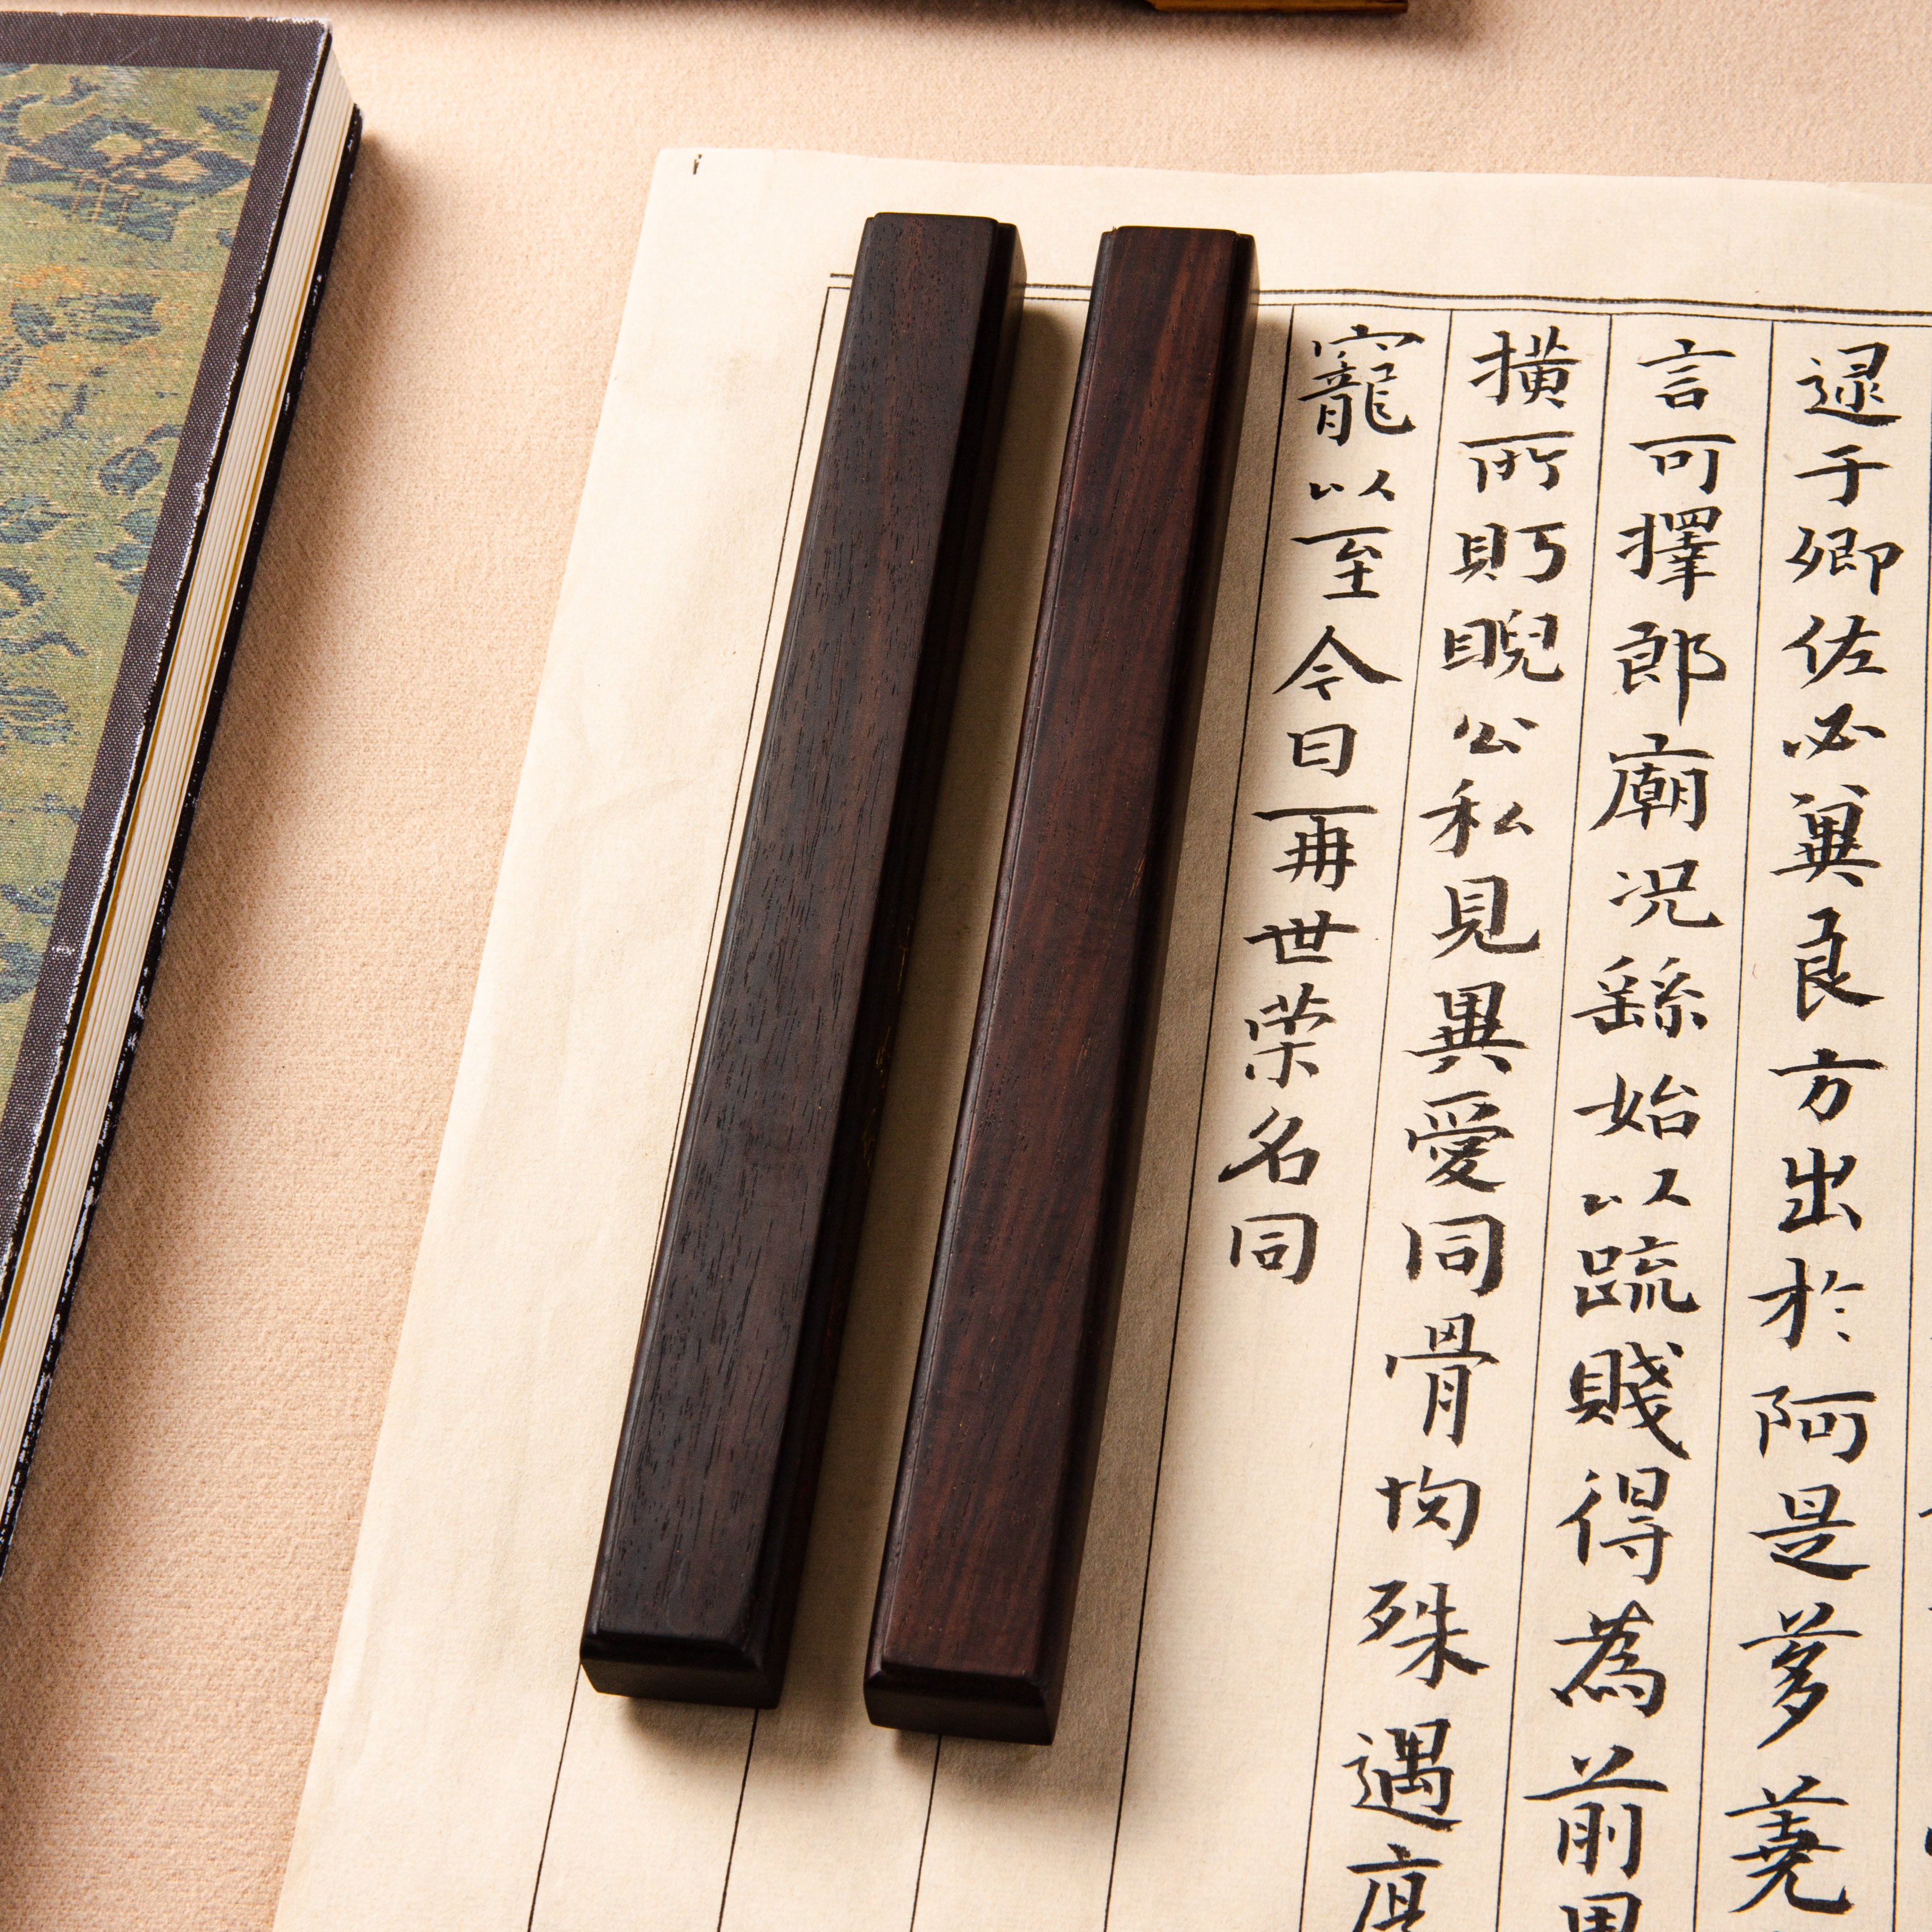 逮于卿佐必冀良方出於阿是芻蕘
言可擇郎廟况繇始以疏賤得為前
横所盻睨公私見異愛同骨肉殊遇
寵以至今日再世荣名同